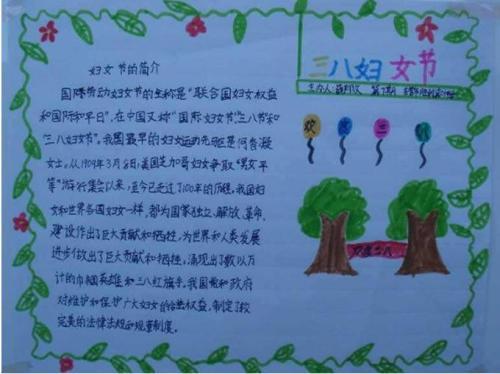 三八妇女节
主办人:
欢度三八
妇女节的简介
国际劳动妇女节的全称是“联合国妇女权益
和国际和平日”,在中国又称“国际妇女节”、“三八节”和
“三八妇女节”。我国最早的妇女运动先驱是何香凝
女士。从1909年3月8日,美国芝加哥妇女争取“男女平
等”游行集会以来,至今已走过了100年的历程。我国妇
女和世界各国妇女一样,都为国家独立、解放、革命、
建设作出了巨大贡献和牺牲,为世界和人类发展
进步做出了巨大贡献和牺牲,涌现出了数以万
计的巾帼英雄和三八红旗手。我国和政府
对维护和保护广大妇女的合法权益,制定了较
完美的法律法规和规章制度。
欢度三八